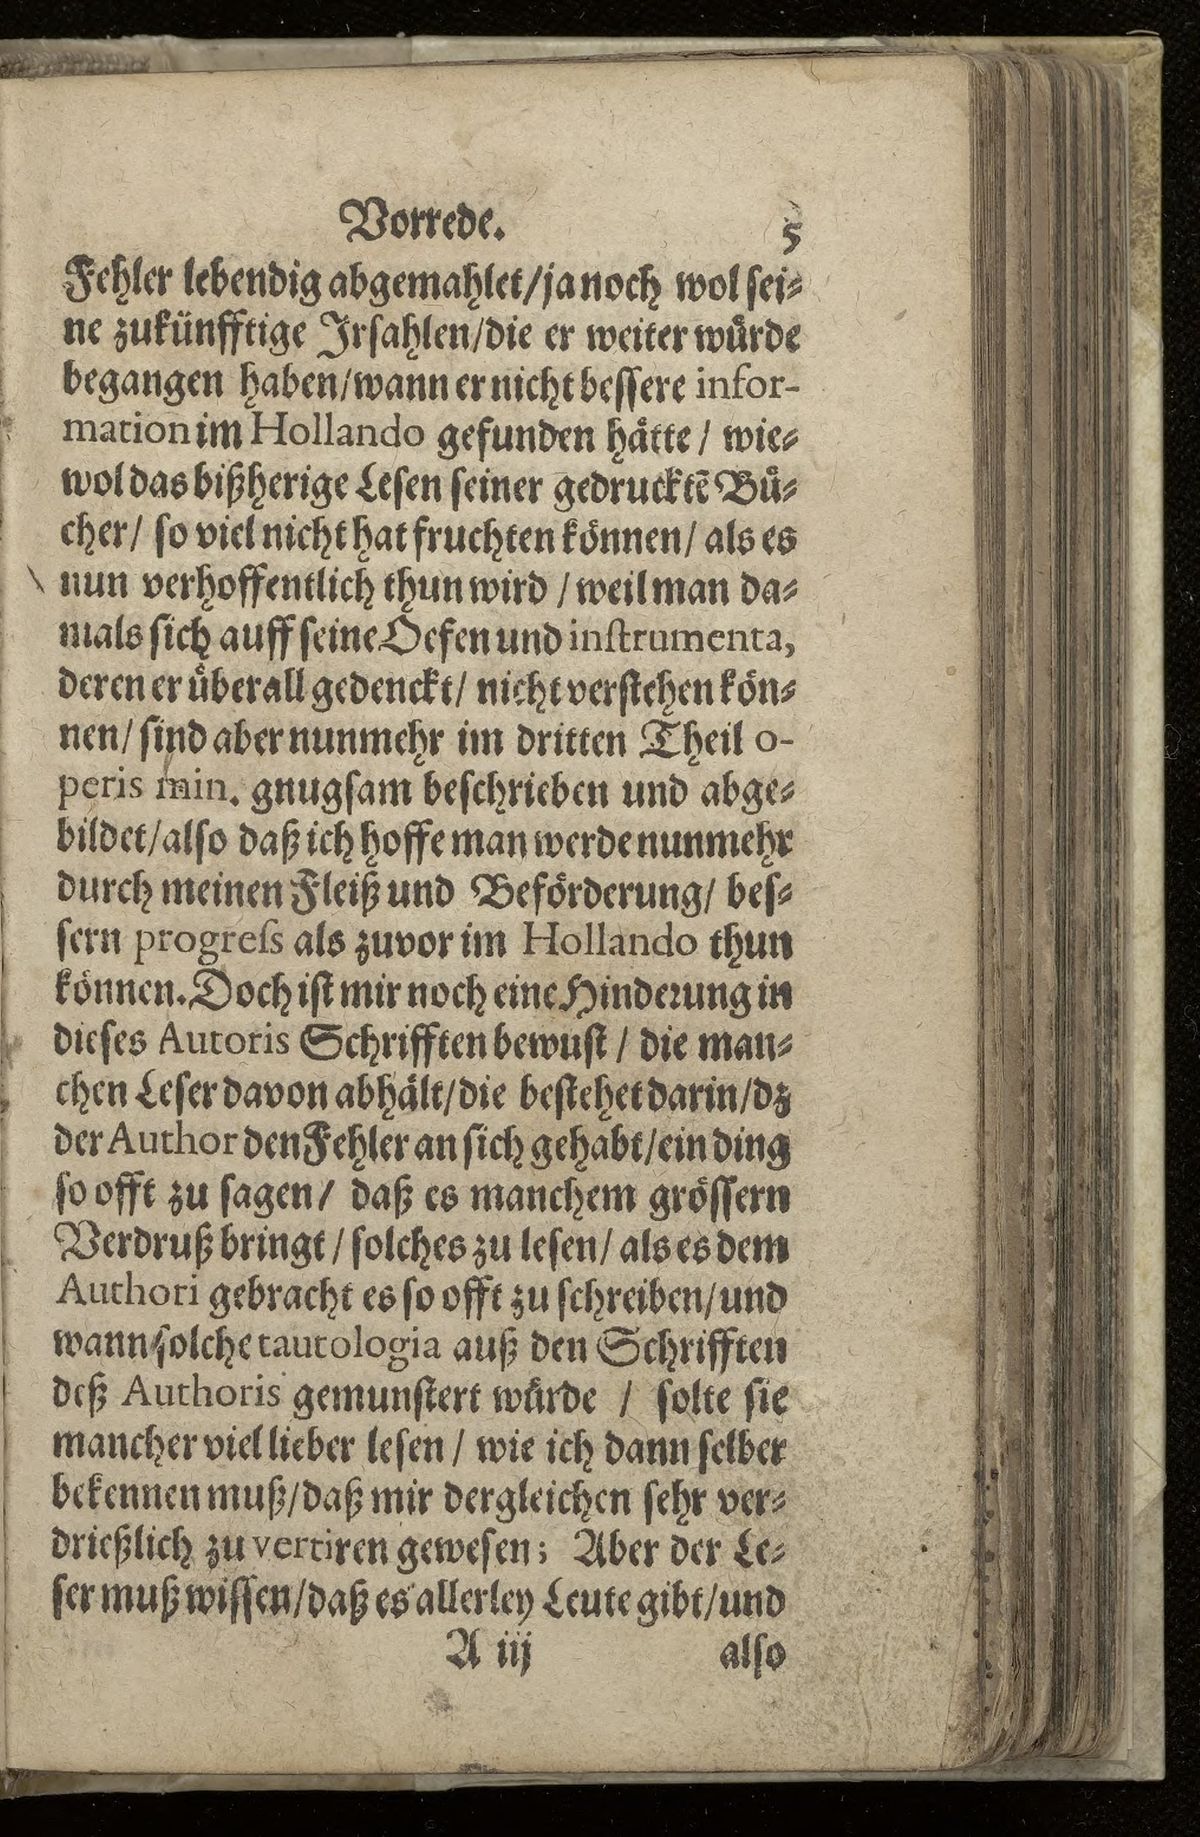 Vorrede. 5
Fehler lebendig abgemahlet/ja noch wol sei⸗
ne zukünfftige Irsahlen/die er weiter wuͤrde
begangen haben/wann er nicht bessere infor-
mation im Hollando gefunden haͤtte / wie⸗
wol das bißherige Lesen seiner gedrucktē Buͤ⸗
cher/ so viel nicht hat fruchten koͤnnen/ als es
nun verhoffentlich thun wird / weil man da⸗
mals sich auff seine Oefen und instrumenta,
deren er uͤberall gedenckt/ nicht verstehen koͤn⸗
nen/ sind aber nunmehr im dritten Theil o-
peris min. gnugsam beschrieben und abge⸗
bildet/also daß ich hoffe man werde nunmehr
durch meinen Fleiß und Befoͤrderung/ bes⸗
sern progress als zuvor im Hollando thun
koͤnnen. Doch ist mir noch eine Hinderung in
dieses Autoris Schrifften bewust / die man⸗
chen Leser davon abhaͤlt/die bestehet darin/dz
der Author den Fehler an sich gehabt/ein ding
so offt zu sagen/ daß es manchem groͤssern
Verdruß bringt / solches zu lesen/ als es dem
Authori gebracht es so offt zu schreiben/und
wann solche tautologia auß den Schrifften
deß Authoris gemunstert wuͤrde / solte sie
mancher viel lieber lesen / wie ich dann selber
bekennen muß/daß mir dergleichen sehr ver⸗
drießlich zu vertiren gewesen; Aber der Le⸗
ser muß wissen/daß es allerley Leute gibt/und
A iij also